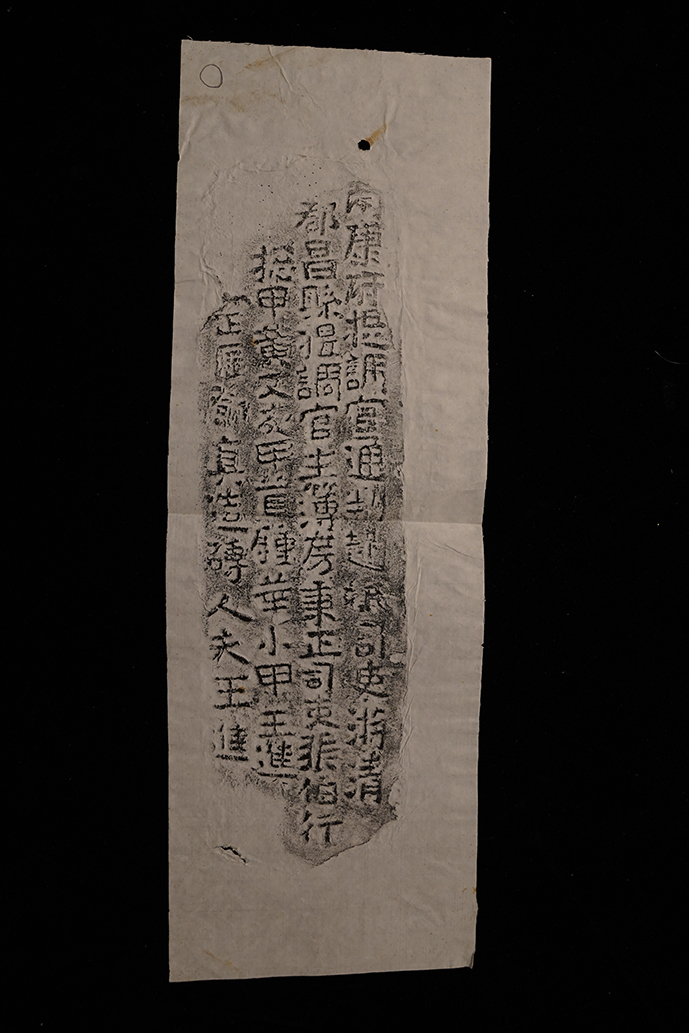 南康府提調官通判趙斌司吏游清
都昌縣提調官主簿房秉正司吏張伯行
總甲黃文甲首陳小甲王進
正匠真造磚人夫王進